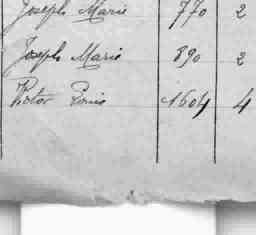 Joseph Marie 770 2
Joseph Marie 890 2
Victor Louis 1604 4